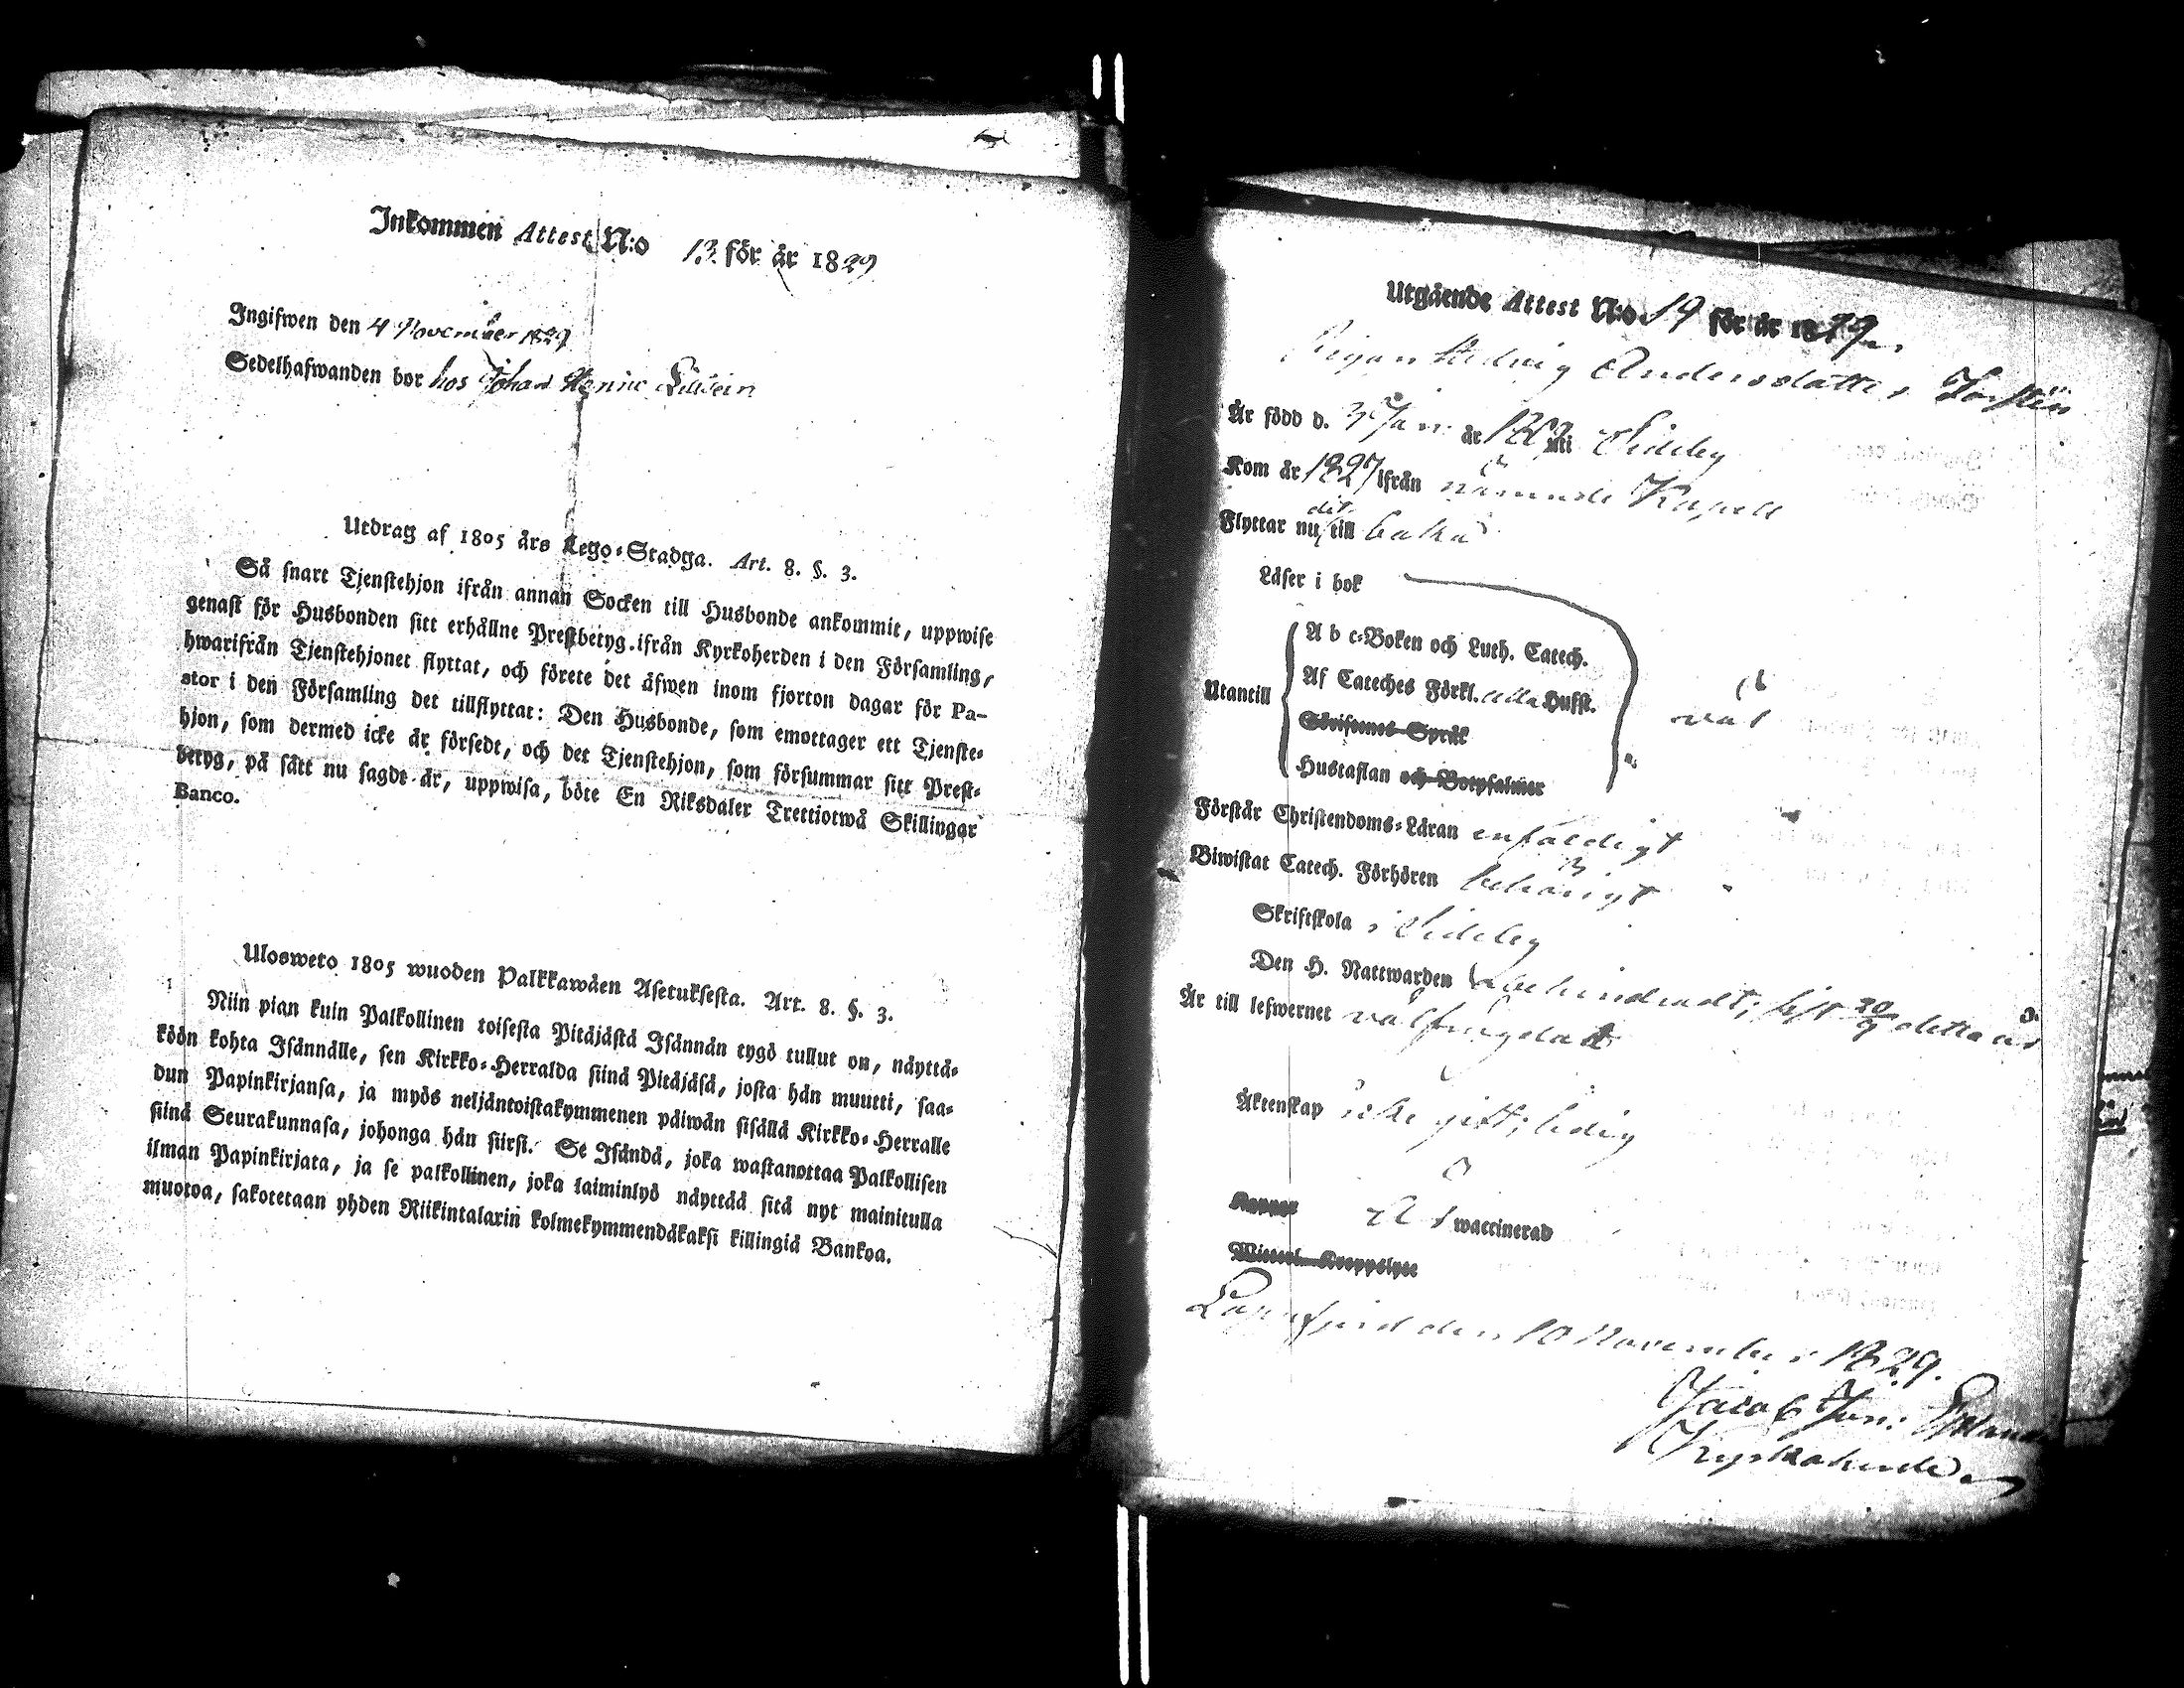 Inkommen Attest N:o 13. för år 1829
Ingifwen den 4 November 1829
Sedelhafwanden bor hos Johan Henric
Utdrag af 1805 års Lego-Stadga. Art. 8. §. 3.
Så snart Tjenstehjon ifrån annan Socken till Husbonde ankommit, uppwise
genast för Husbonden sitt erhållne Prestbetyg ifrån Kyrkoherden i den Församling,
hwarifrån Tjenstehjonet flyttat, och förete det äfwen inom fjorton dagar för Pa-
stor i den Församling det tillflyttat: Den Husbonde, som emottager ett Tjenste-
hjon, som dermed icke är försedt, och det Tjenstehjon, som försummar sitt Prest-
betyg, på sätt nu sagdt är, uppwisa, böte En Riksdaler Trettiotwå Skillingar
Banco.
Ulosweto 1805 wuoden Palkkawäen Asetuksesta. Art. 8. §. 3.
Niin pian kuin Palkollinen toisesta Pitäjästä Isännän tygö tullut on, näyttä-
köön kohta Isännälle, sen Kirkko-Herralda siinä Pitäjäsä, josta hän muutti, saa-
dun Papinkirjansa, ja myös neljäntoistakymmenen päiwän sisällä Kirkko-Herralle
siinä Seurakunnasa, johonga hän siirsi. Se Isändä, joka wastanottaa Palkollisen
ilman Papinkirjata, ja se palkollinen, joka laiminlyö näyttää sitä nyt mainitulla
muotoa, sakotetaan yhden Riikintalarin kolmekymmendäkaksi killingiä Bankoa.
Utgående Attest N:o 19 för år 1829.
Hedvig Andersdotter
Är född d. 3 Jan. år uti Sideby
Kom år 1827 ifrån nämnde Kapell
Flyttar nu dit till baka
Läser i bok
Utantill
A b c-Boken och Luth. Catech.
Af Cateches Förkl. Husst.
Skriftenes Språk
Hustaflan och Botpsalmer
väl
Förstår Christendoms-Läran enfaldigt
Biwistat Catech. Förhören behörigt
Skriftskola i Sideby
Den H. Nattwarden obehindradt; sist 20/9 detta år
Är till lefwernet välfrägdad
Äktenskap icke gift; ledig
Koppor Är waccinerad
Witterl. Kroppslyte
Lappfjerd den 10 November 1829.
Jacob Jon.
Kyrkoherde